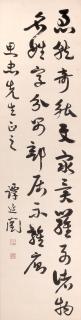 急就奇觚與衆異羅列諸物
名姓字分別部居不雜廁
思忠先生正之
譚延闓